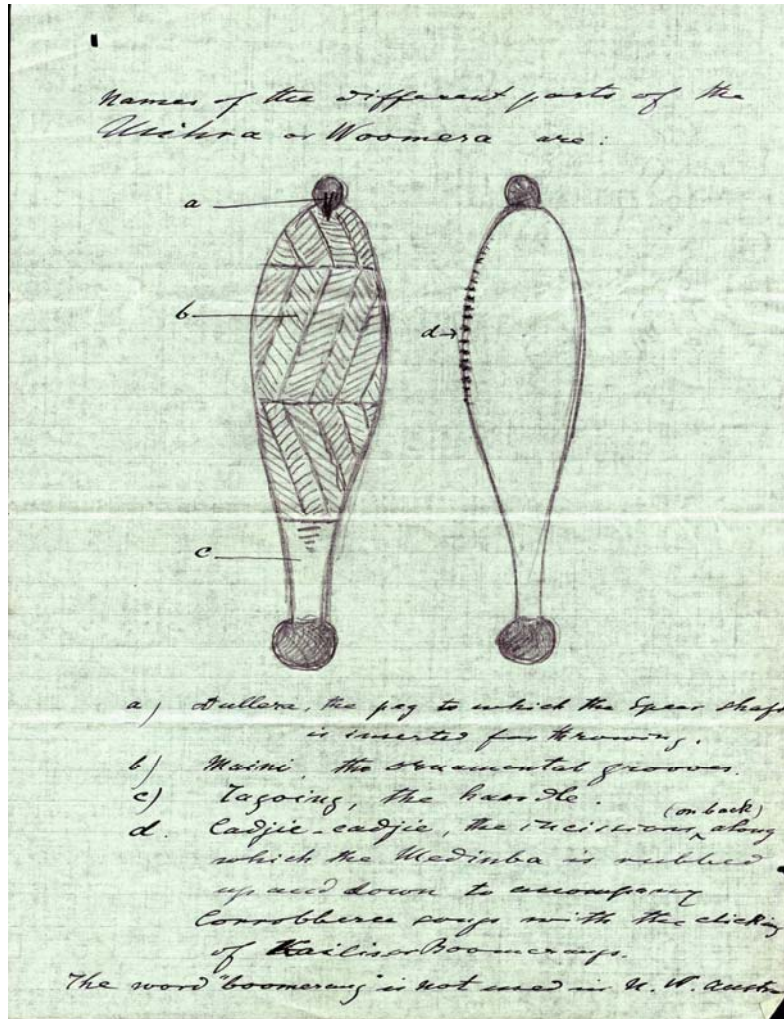 Names of the different parts of the
or Woomera are:
a
b
c
d
a) Dullera, the peg to which the Spear shaf
is inserted for throwing.
b) Maini, the ornamental grooves.
c) Tagoing, the handle.
d. Cadjie-cadjie, the incissions, (on back) along
which the is rubbed
up and down to accompany
Corrobberee songs with the clicking
of Boomerangs.
The word "boomerang" is not used in N. W. Austra